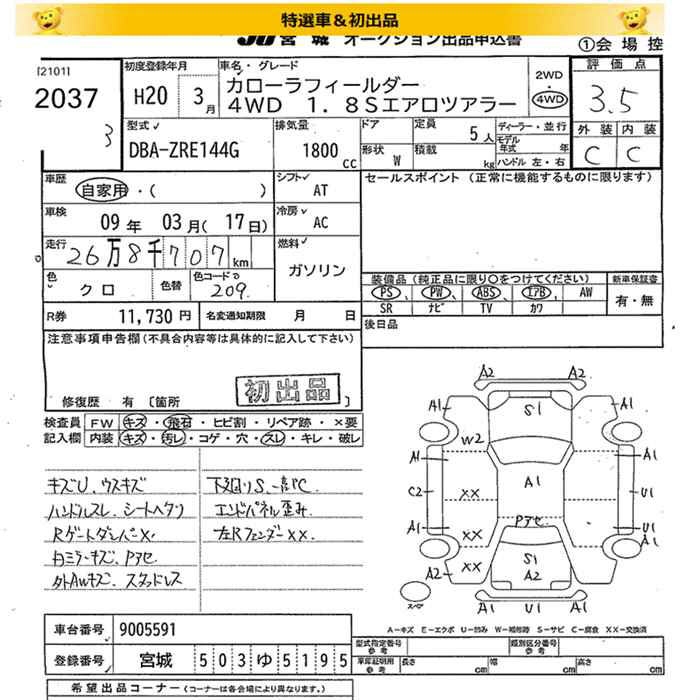 特選車＆初出品
JU 宮城 オークション出品申込書
①会場控
[2101]
2037
3
初度登録年月
H20 3月
車名・グレード
カローラフィールダー
4WD 1.8Sエアロツアラー
2WD
・
4WD
評価点
3.5
外装 内装
C C
型式
DBA-ZRE144G
排気量
1800cc
ドア
形状 W
定員 5人
積載 kg
ディーラー・並行
モデル年式 年
ハンドル 左・右
車歴
自家用・( )
シフト AT
セールスポイント (正常に機能するものに限ります)
車検
09年 03月( 17日)
冷房 AC
走行
26万8千707km
燃料
ガソリン
色
クロ
色替
色コード
209
装備品 (純正品に限り○をつけてください)
新車保証書
PS PW ABS エアB AW
SR ナビ TV カワ
有・無
R券 11,730円
名変通知期限 月 日
後日品
注意事項申告欄(不具合内容等は具体的に記入して下さい)
初出品
修復歴 有 〔箇所 〕
検査員記入欄
FW キズ・飛石・ヒビ割・リペア跡・×要
内装 キズ・汚レ・コゲ・穴・スレ・キレ・破レ
キズU、ウスキズ
ハンドルスレ、シートヘタリ
Rゲートダンパーx、
白ミラーキズ、Pアセ
外AWキズ、スタッドレス
下廻りS、一部C
エンドパネル歪み
左Rフェンダーxx、
A2
A1 S1 A1
W2
A1 A1
C2 XX A1 U1
A1 XX Pアセ U1
A1
A2 XX S1
A2 A2
スペア
A1 U1 A1
A－キズ E－エクボ U－凹み W－補修跡 S－サビ C－腐食 XX－交換済
車台番号 9005591
登録番号 宮城 503ゆ5195
型式指定番号 参考
類別区分番号 参考
車庫証明用 参考 長さ cm 幅 cm 高さ cm
希望出品コーナー (コーナーは各会場により異なります。)